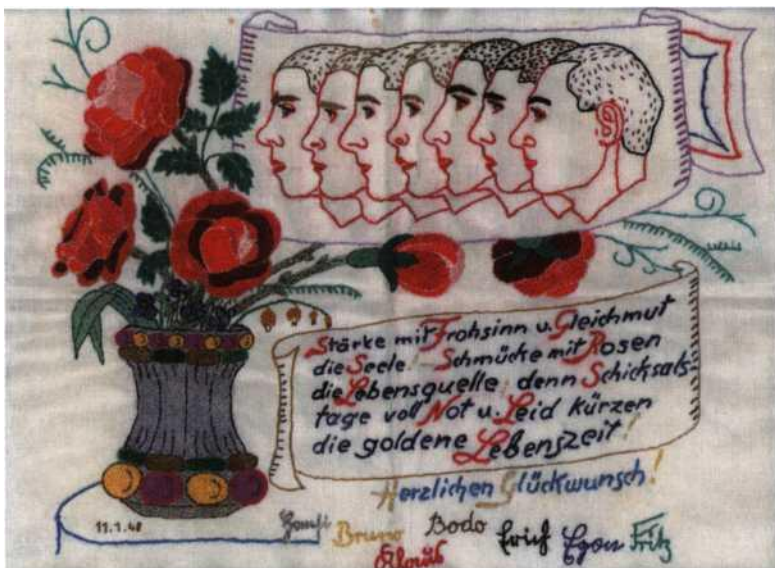 Stärke mit Frohsinn u. Gleichmut
die Seele! – Schmücke mit Rosen
die Lebensquelle, denn Schicksals
tage voll Not u. Leid kürzen
die goldene Lebenszeit!
Herzlichen Glückwunsch!
11.1.48
Bruno Bodo Erich Egon Fritz
Klaus